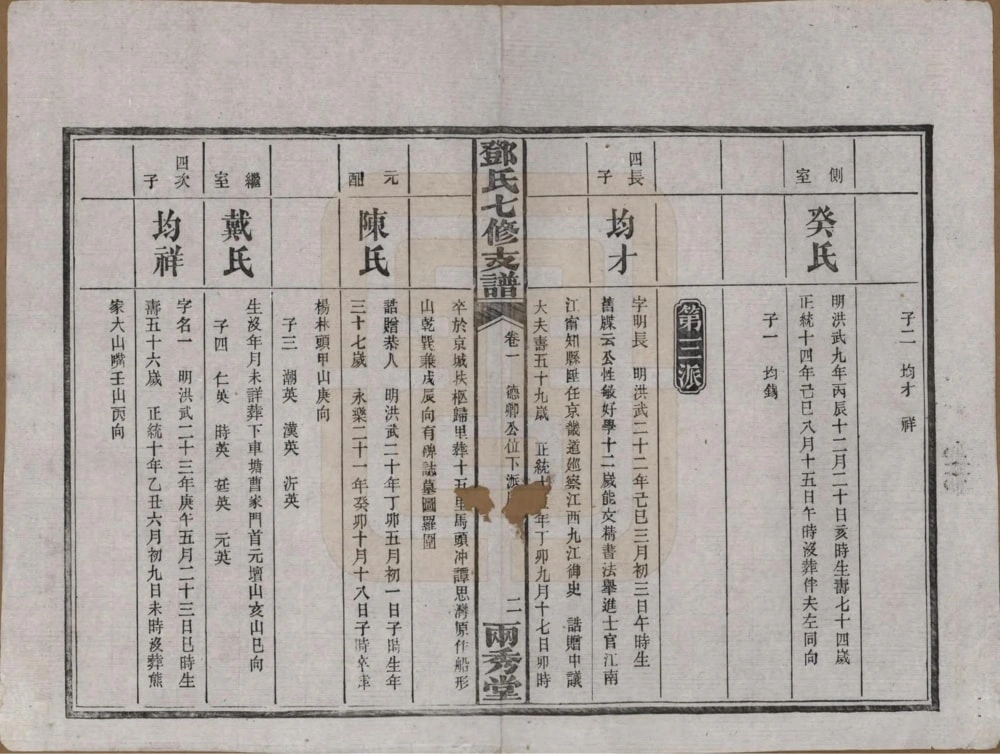 子二　均才　祥
側室
癸氏
明洪武九年丙辰十二月二十日亥時生壽七十四歲
正統十四年己巳八月十五日午時沒葬伴夫左同向
子一　均錢
第三派
四長子
均才
字明長　明洪武二十二年己巳三月初三日午時生
舊牒云公性敏好學十二歲能文精書法舉進士官江南
江甯知縣陞任京畿道巡察江西九江御史　誥贈中議
大夫壽五十九歲　正統十年丁卯九月十七日卯時
鄧氏七修支譜
卷一
德卿公位下派
二
兩秀堂
卒於京城扶柩歸里葬十五里馬頭冲譚思灣原作船形
山乾巽兼戌辰向有碑誌墓圖羅圍
元配
陳氏
誥贈恭人　明洪武二十年丁卯五月初一日子時生年
三十七歲　永樂二十一年癸卯十月十八日子時卒葬
楊林頭甲山庚向
子三　潮英　漢英　沂英
繼室
戴氏
生沒年月未詳葬下車塘曹家門首元壇山亥山巳向
子四　仁英　時英　廷英　元英
四次子
均祥
字名一　明洪武二十三年庚午五月二十三日巳時生
壽五十六歲　正統十年乙丑六月初九日未時沒葬熊
家大山嘴壬山丙向